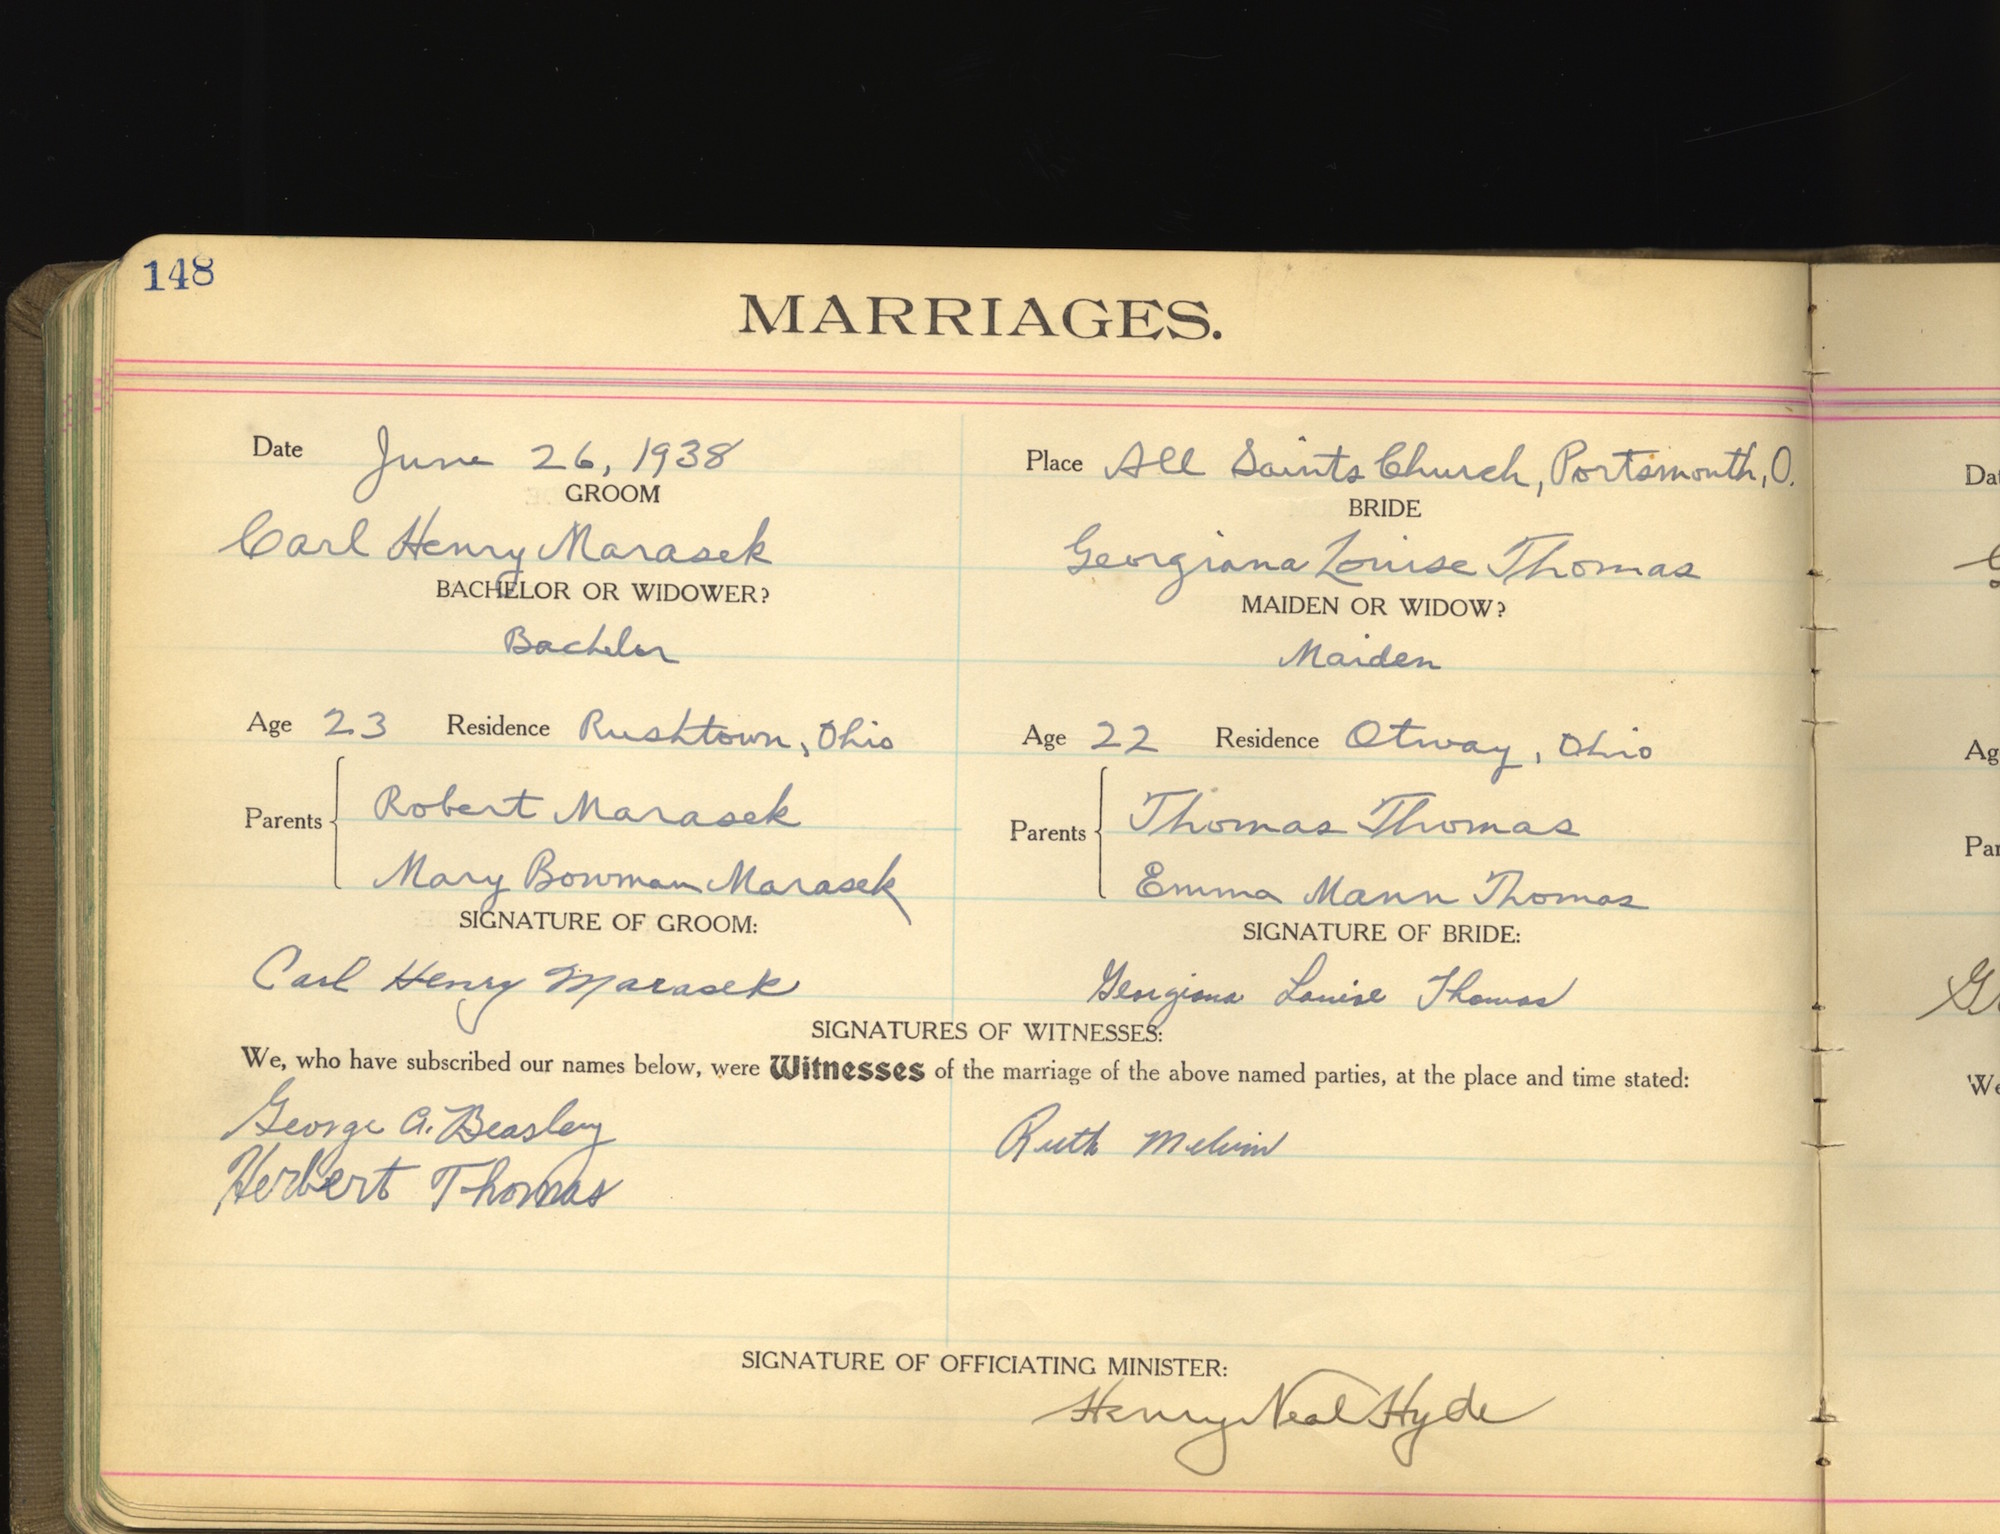 148
MARRIAGES.
Date June 26, 1938
Place All Saints Church, Portsmouth, O.
GROOM
BRIDE
Carl Henry Marasek
Georgiana Louise Thomas
BACHELOR OR WIDOWER?
MAIDEN OR WIDOW?
Bachelor
Maiden
Age 23 Residence Rushtown, Ohio
Age 22 Residence Otway, Ohio
Parents
Robert Marasek
Mary Bowman Marasek
Parents
Thomas Thomas
Emma Mann Thomas
SIGNATURE OF GROOM:
SIGNATURE OF BRIDE:
Carl Henry Marasek
Georgiana Louise Thomas
SIGNATURES OF WITNESSES:
We, who have subscribed our names below, were Witnesses of the marriage of the above named parties, at the place and time stated:
George A. Beasley
Ruth Melvin
Herbert Thomas
SIGNATURE OF OFFICIATING MINISTER:
Henry Neal Hyde